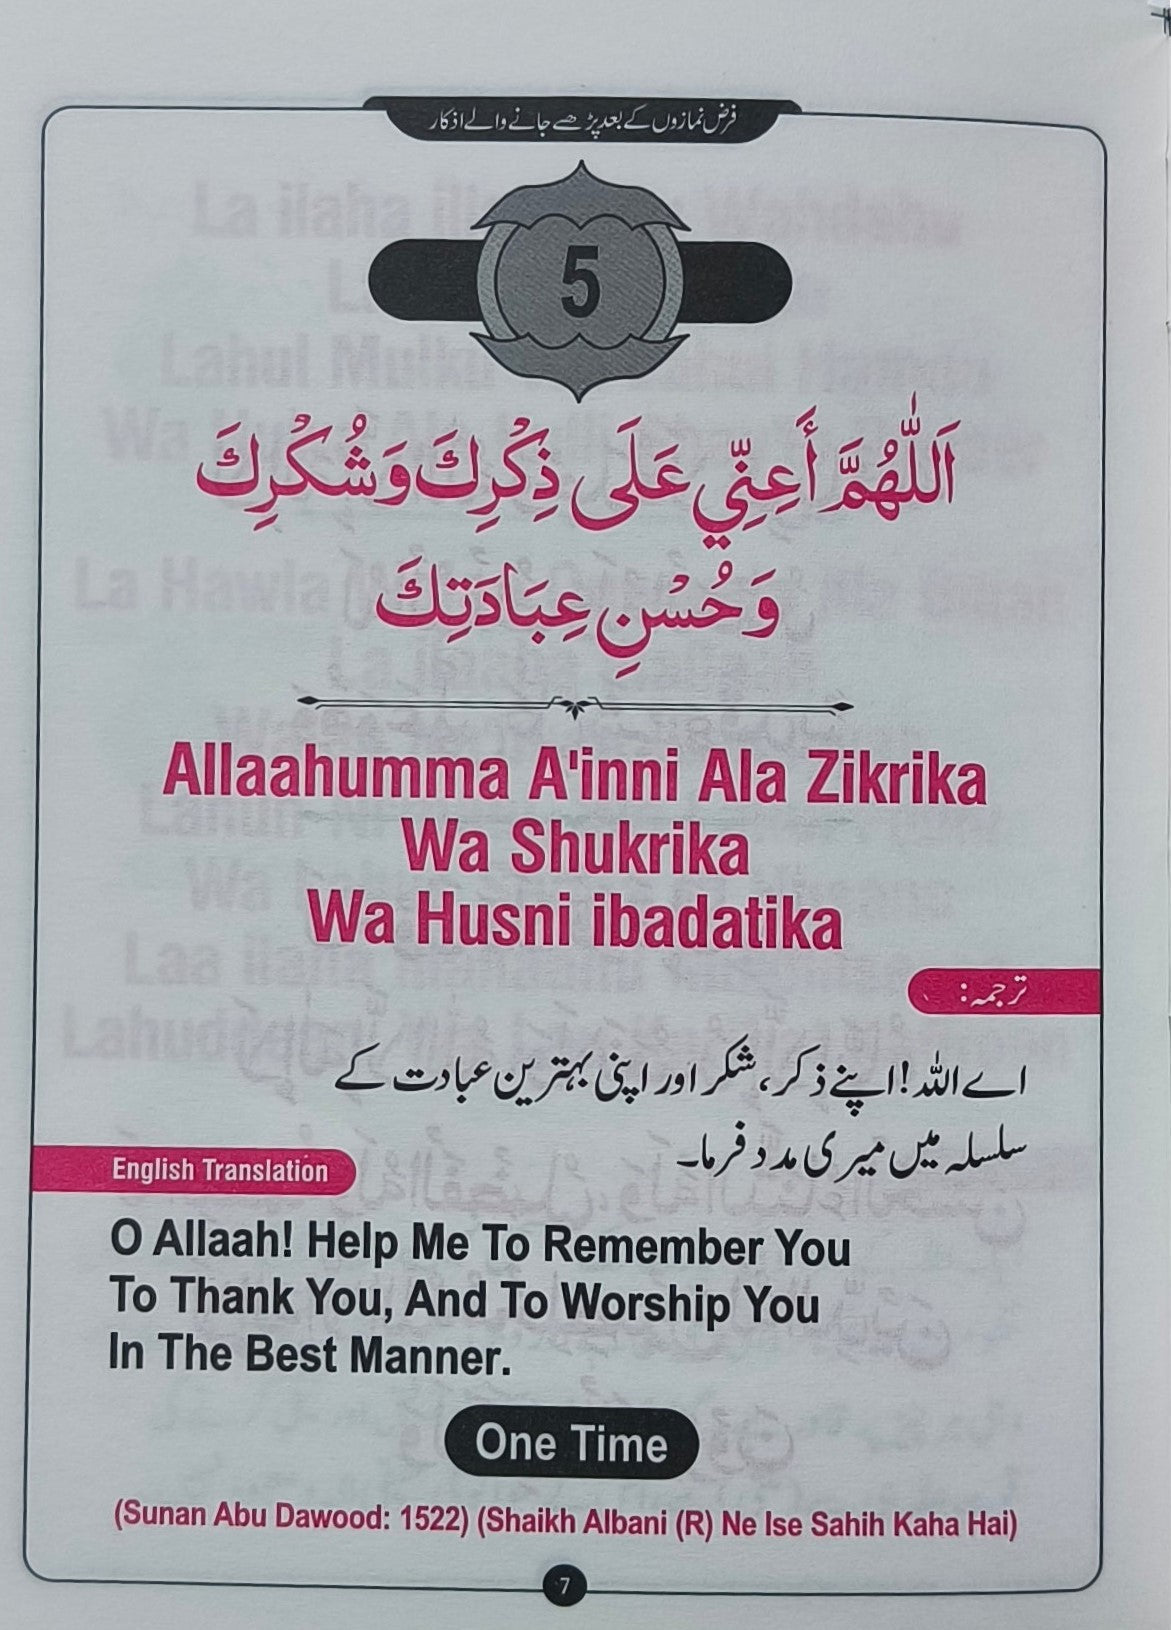 فرض نمازوں کے بعد پڑھے جانے والے اذکار
5
اَللّٰهُمَّ أَعِنِّي عَلَى ذِكْرِكَ وَشُكْرِكَ
وَحُسْنِ عِبَادَتِكَ
Allaahumma A'inni Ala Zikrika
Wa Shukrika
Wa Husni ibadatika
ترجمہ:
اے اللہ! اپنے ذکر، شکر اور اپنی بہترین عبادت کے
سلسلہ میں میری مدد فرما۔
English Translation
O Allaah! Help Me To Remember You
To Thank You, And To Worship You
In The Best Manner.
One Time
(Sunan Abu Dawood: 1522) (Shaikh Albani (R) Ne Ise Sahih Kaha Hai)
7